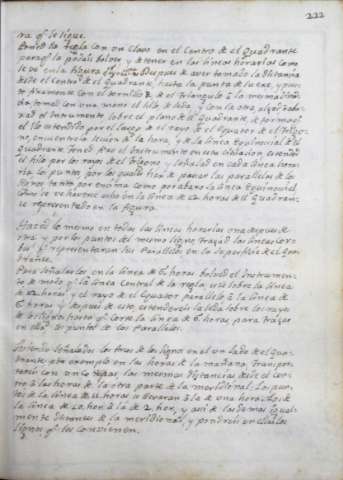 222
ra q̃ se sigue.
Poned la regla con un clavo en el Centro de el quadrante
paraq̃ la podais bolver, y tener en las lineas horarias como
se ve en la figura Despues de aver tomado la distancia
desde el Centro de el quadrante hasta la punta de la exe, y pues
to firmemente con el tornillo de el triangulo à la mesma
tomad con una mano el hilo de seda y con la otra
rad el Instrumento sobre el plano de el quadrante, de forma q̃
el hilo estendido por el luego de el rayo de el Equator de el trigo
no, encuentre la sección de la hora, y de la linea Equinocial de el
quadrante. Tened el Instrumento en esta situacion, estended
el hilo por los rayos de el trigono, y señalad en cada linea hora
ria los puntos por los quales han de passar los parallelos de los
signos tanto por encima como por abaxo la linea Equinocial
como se ve hecho en la linea de 12 horas de el quadran
te representado en la figura.
Hazed lo mesmo en todas las lineas horarias una despues de
otra y por los puntos del mesmo signo trazad las lineas cor
bas q̃ representaran los Parallelos en la superficie de el qua
drante.
Para señalarlos en la linea de 6 horas bolved el Instrumen
to de modo q̃ la linea Central de la regla esté sobre la linea
de 12 horas y el rayo de el Equator parallelo à la linea de
6 horas y despues de esto, estendereis la seda sobre los rayos
de los signos hasta q̃ corte la linea de 6 horas, para trazar
en ella los puntos de los Parallelos.
señalados los arcos de los signos en el un lado de el qua
drante por exemplo en las horas de la mañana, transpor
tareis con un Compas, las mesmas distancias desde el cen
tro à las horas de la otra parte de la meridional. Los pun
tos de la linea de 11 horas se llevaran à la de una hora. Los de
la linea de 10 horas à la de 2 horas, y assi de las demas igual
mente distantes de la meridional, y pondreis en ellas los
signos q̃ les convienen.